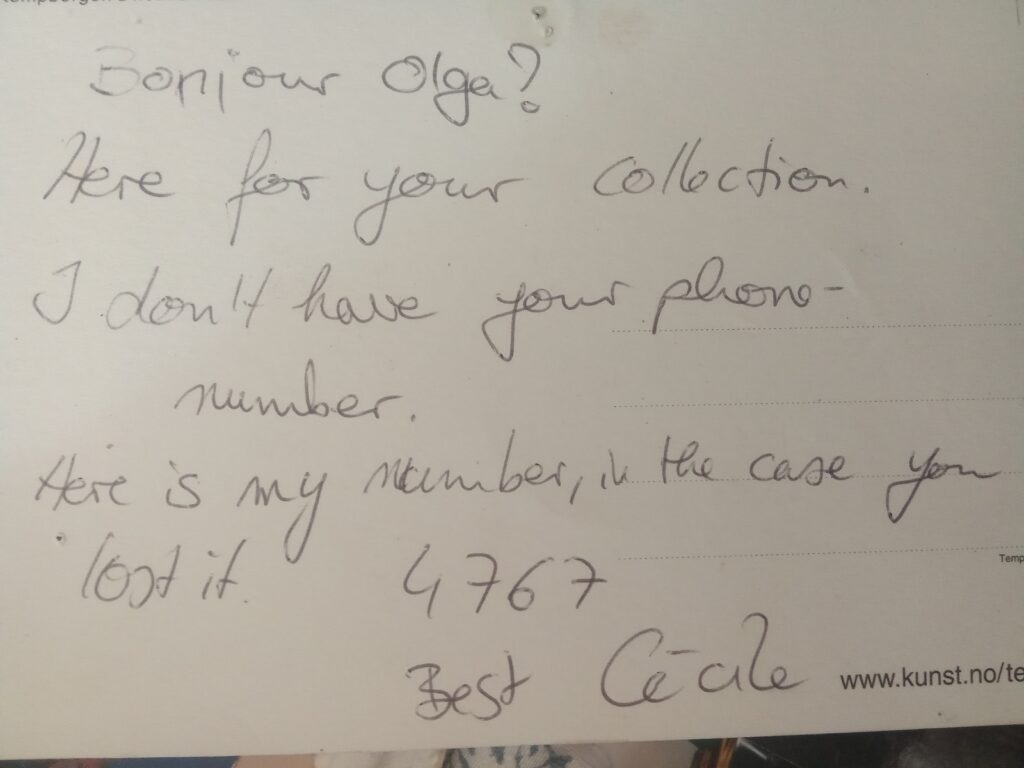 Bonjour Olga?
Here for your collection.
I don't have your phone-
number.
Here is my number, in the case you
lost it. 4767
Best Cécile
Temp
www.kunst.no/te